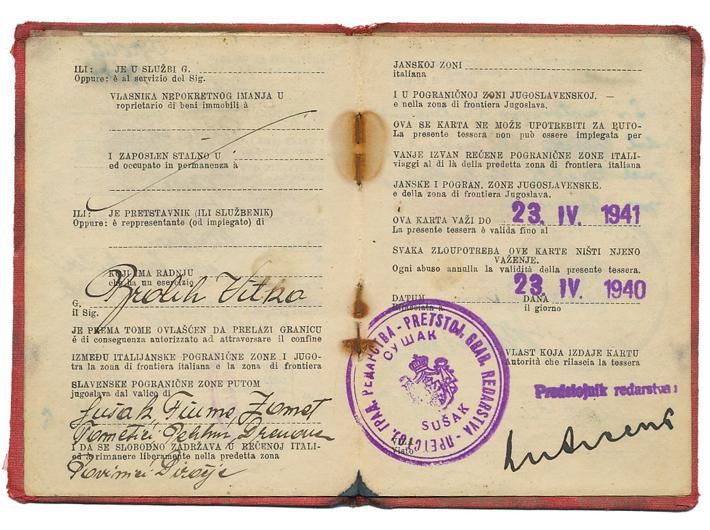 ILI: JE U SLUŽBI G.
Oppure: è al servizio del Sig.
VLASNIKA NEPOKRETNOG IMANJA U
roprietario di beni immobili à
I ZAPOSLEN STALNO U
ed occupato in permanenza à
ILI: JE PRETSTAVNIK (ILI SLUŽBENIK)
Oppure: è reppresentante (od impiegato) di
KOJI IMA RADNJU
che ha un esercizio
G. Brozih Vitko
il Sig.
JE PREMA TOME OVLAŠĆEN DA PRELAZI GRANICU
è di consegueuza autorizzato ad attraversare il confine
IZMEĐU ITALIJANSKE POGRANIČNE ZONE I JUGO-
tra la zona di frontiera italiana e la zona di frontiera
SLAVENSKE POGRANIČNE ZONE PUTOM
jugoslava dal valico di
Sušak Fiume, Zamet
Pometići Drenova
I DA SE SLOBODNO ZADRŽAVA U REČENOJ ITALI-
ed rimanere liberamente nella predetta zona
JANSKOJ ZONI
italiana
I U POGRANIČNOJ ZONI JUGOSLAVENSKOJ. —
e nella zona di frontiera Jugoslava.
OVA SE KARTA NE MOŽE UPOTREBITI ZA PUTO-
La presente tessera non può essere impiegata per
VANJE IZVAN REČENE POGRANIČNE ZONE ITALI-
viaggi al di là della predetta zona di frontiera italiana
JANSKE I POGRAN. ZONE JUGOSLAVENSKE.
e della zona di frontiera Jugoslava.
OVA KARTA VAŽI DO 23. IV. 1941
La presente tessera è valida fino al
SVAKA ZLOUPOTREBA OVE KARTE NIŠTI NJENO
VAŽENJE.
Ogni abuso annulla la validità della presente tessera.
DATUM DANA 23. IV. 1940
Rilasciata a il giorno
VLAST KOJA IZDAJE KARTU
Autorità che rilascia la tessera
PRETSTOJ. GRAD. REDARSTVA
СУШАК
SUŠAK
Visto
Predstojnik redarstva: